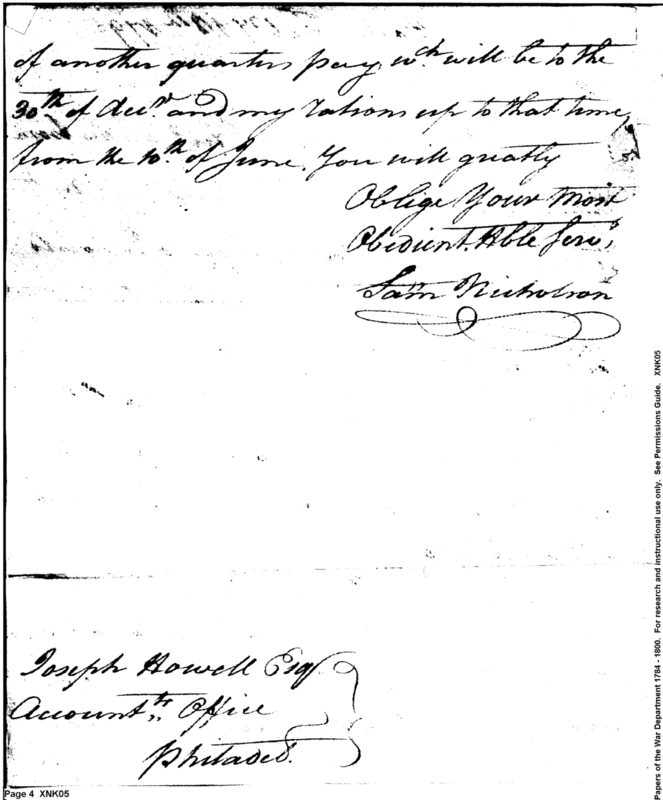 of another quarters pay wch. will be to the
30th of decr. and my rations up to that time,
from the 10th. of June. You will greatly
Oblige Your Most
Obedient. Hble Servt,
Sam Nicholson
Joseph Howell Esqr
Accountts. Office
Philadel.
Page 4 XNK05
Papers of the War Department 1784 - 1800. For research and instructional use only. See Permissions Guide. XNK05